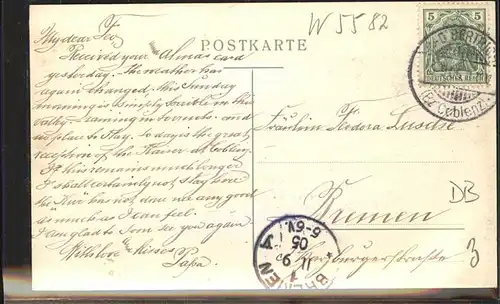 W 5582
POSTKARTE
5 5
DEUTSCHES REICH
BAD BERTRICH
(Bz. Coblenz)
My dear Feo
Received your Alma's card
yesterday. The weather has
again changed, this Sunday
morning is simply terrible in this
valley. Raining in torrents and
no place to stay. To day is the great
reception of the Kaiser at Coblenz.
If this remains much longer
I shall certainly not stay here
the Kur has not done me any good
as much as I can feel.
I am glad to soon see you again
With love & kisses
Papa
Fräulein Fedora
Bremen
DB
Harzburgerstraße 3
BREMEN 1
11 9 05
5-6 N.